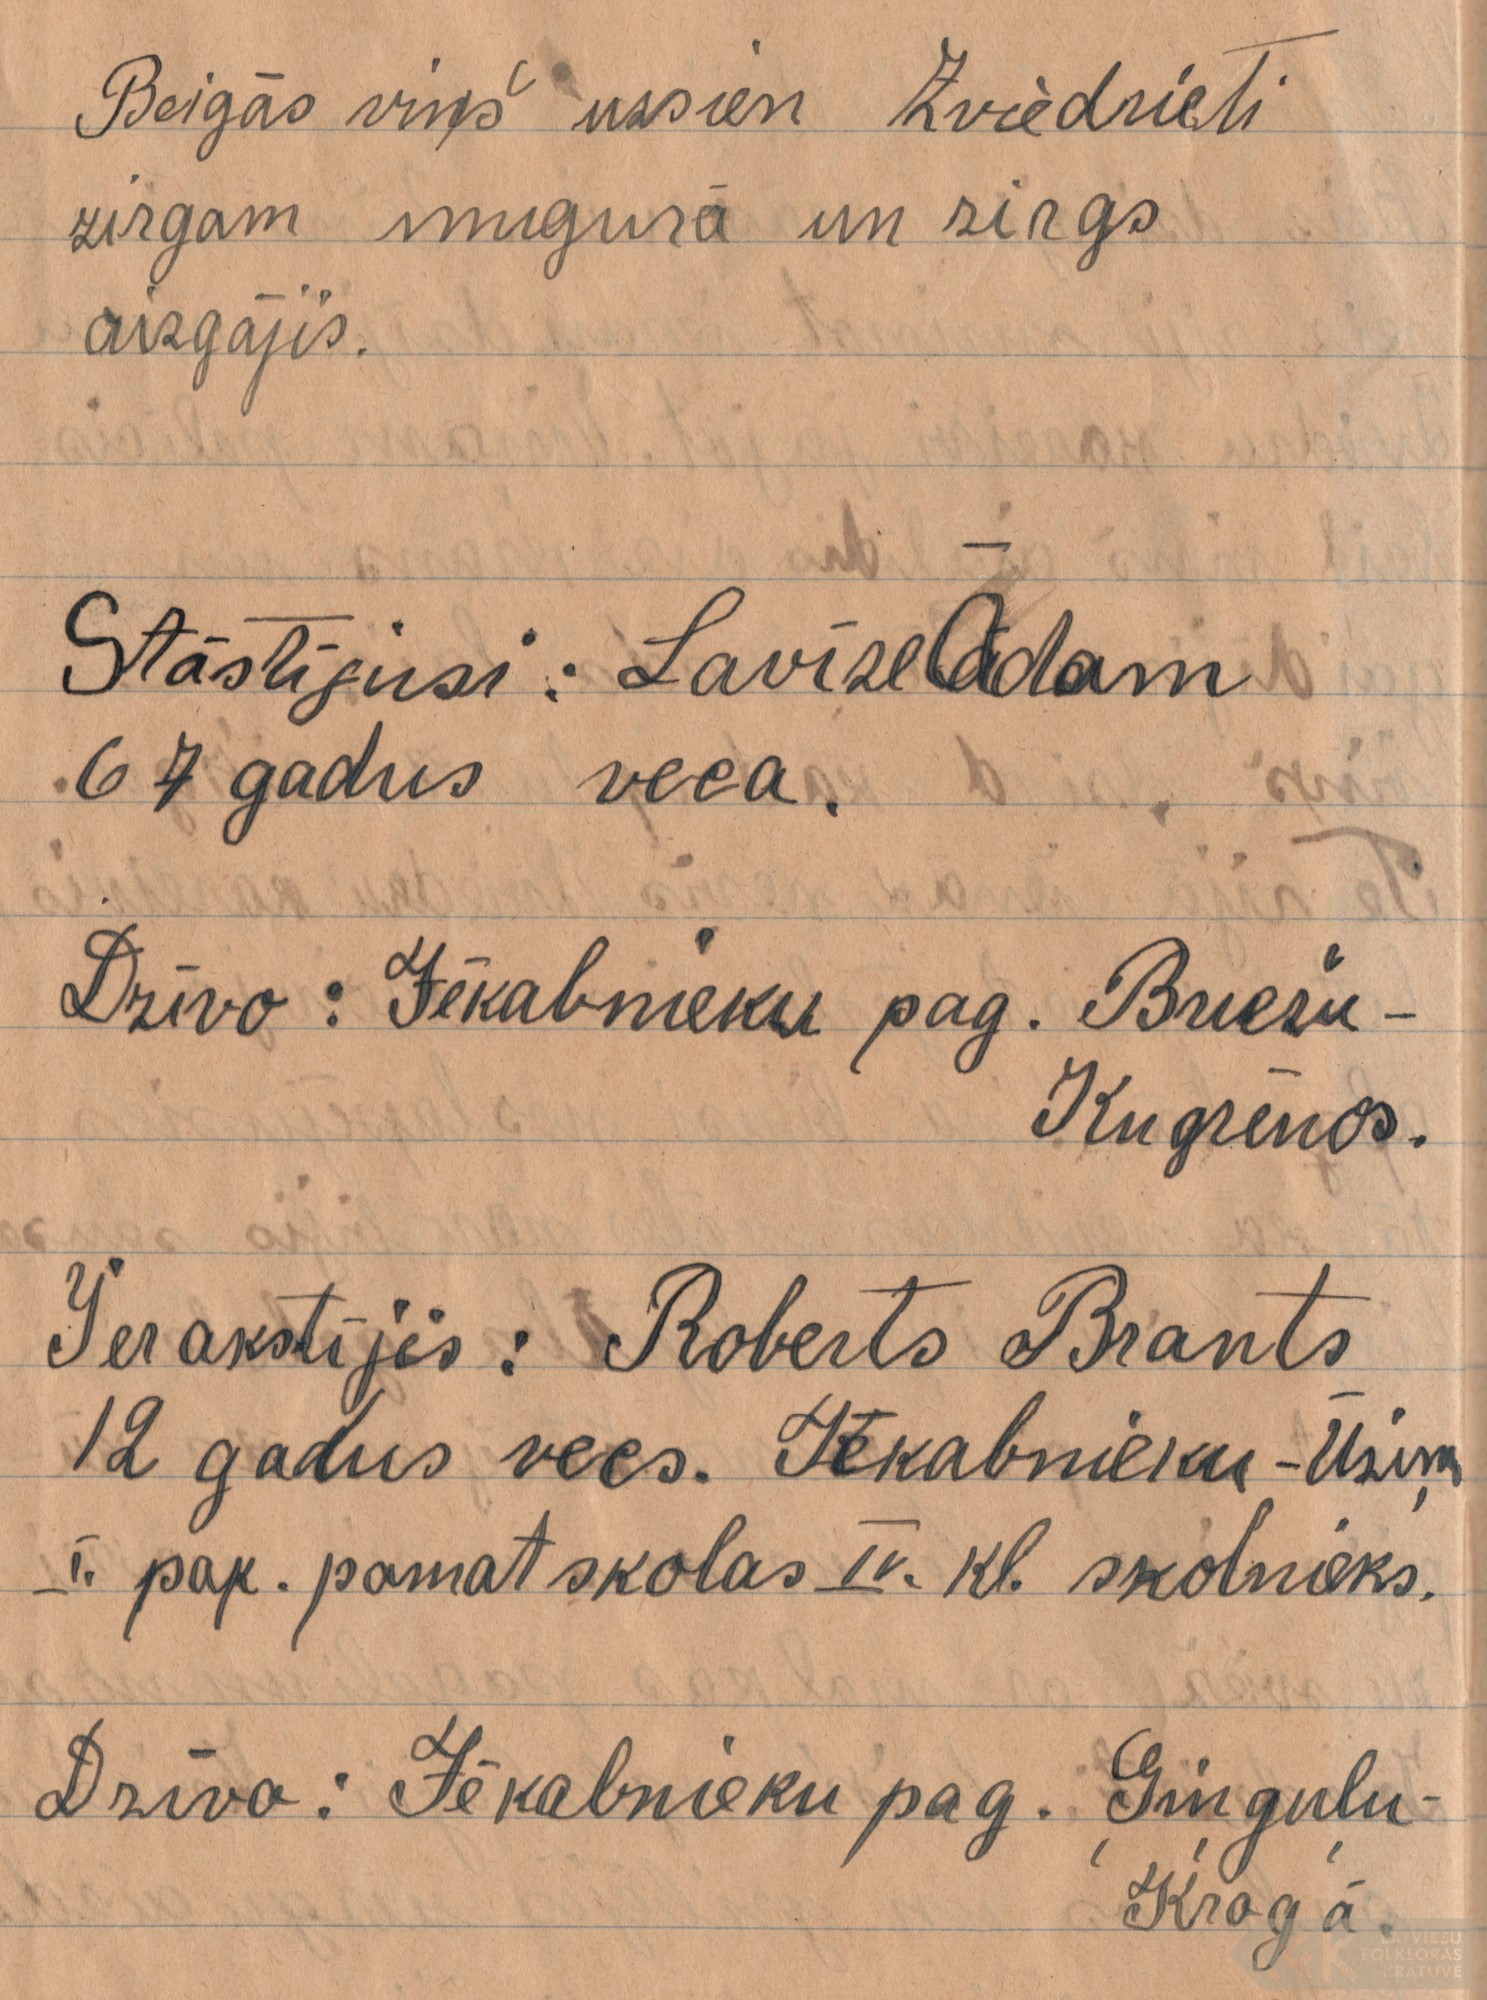 Beigās viņš uzsien Zviedrieti
zirgam mugurā un zirgs
aizgājis.
Stāstījusi: Lavīze Ādam
67 gadus veca.
Dzīvo: Jēkabnieku pag. Briežu-
Kugrēnos.
Ierakstījis: Roberts Brants
12 gadus vecs. Jēkabnieku-Ūziņ
I. pak. pamatskolas IV. kl. skolnieks.
Dzīvo: Jēkabnieku pag. Ģiņguļu-
Krogā.
LATVIEŠU
FOLKLORAS
KRĀTUVE